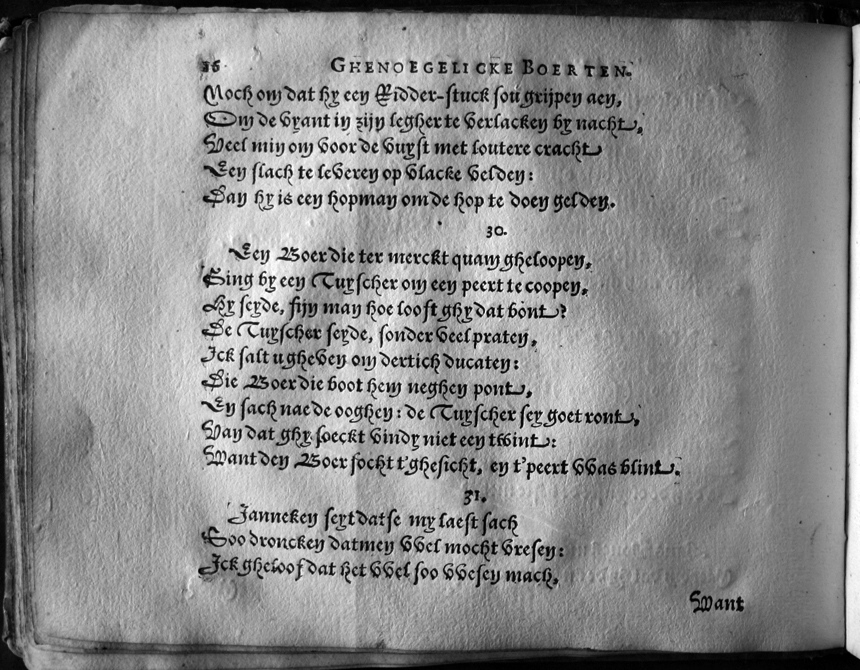 36 GHENOEGELICKE BOERTEN.
Noch om dat hy een Ridder-stuck sou grijpen aen,
Om de vyant in zijn legher te verlacken by nacht,
Veel min om voor de vuyst met loutere cracht
Een slach te leveren op vlacke velden:
Dan hy is een hopman om de hop te doen gelden.
30.
Een Boer die ter merckt quam gheloopen,
Ging by een Tuyscher om een peert te coopen,
Hy seyde, fijn man hoe looft ghy dat bont?
De Tuyscher seyde, sonder veel praten,
Ick salt u gheven om dertich ducaten:
Die Boer die boot hem neghen pont,
En sach nae de ooghen: de Tuyscher sey goet ront,
Van dat ghy soeckt vindy niet een twint:
Want den Boer socht t'ghesicht, en t'peert vvas blint.
31.
Janneken seyt datse my laest sach
Soo droncken datmen vvel mocht vresen:
Ick gheloof dat het vvel soo vvesen mach,
Want